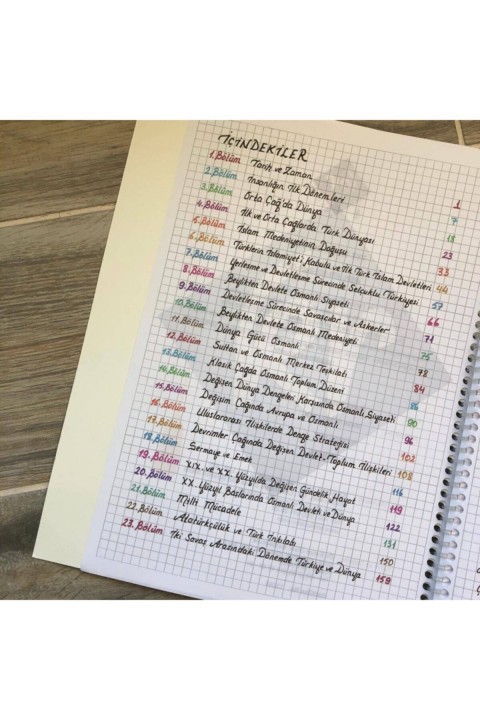 İÇİNDEKİLER
1.Bölüm Tarih ve Zaman 1
2.Bölüm İnsanlığın İlk Dönemleri 7
3.Bölüm Orta Çağ'da Dünya 18
4.Bölüm İlk ve Orta Çağlarda Türk Dünyası 23
5.Bölüm İslam Medeniyetinin Doğuşu 33
6.Bölüm Türklerin İslamiyet'i Kabulü ve İlk Türk İslam Devletleri 44
7.Bölüm Yerleşme ve Devletleşme Sürecinde Selçuklu Türkiyesi 57
8.Bölüm Beylikten Devlete Osmanlı Siyaseti 66
9.Bölüm Devletleşme Sürecinde Savaşçılar ve Askerler 71
10.Bölüm Beylikten Devlete Osmanlı Medeniyeti 75
11.Bölüm Dünya Gücü Osmanlı 78
12.Bölüm Sultan ve Osmanlı Merkez Teşkilatı 84
13.Bölüm Klasik Çağda Osmanlı Toplum Düzeni 86
14.Bölüm Değişen Dünya Dengeleri Karşısında Osmanlı Siyaseti 90
15.Bölüm Değişim Çağında Avrupa ve Osmanlı 96
16.Bölüm Uluslararası İlişkilerde Denge Stratejisi 102
17.Bölüm Devrimler Çağında Değişen Devlet-Toplum İlişkileri 108
18.Bölüm Sermaye ve Emek 116
19.Bölüm XIX. ve XX. Yüzyılda Değişen Gündelik Hayat 119
20.Bölüm XX. Yüzyıl Başlarında Osmanlı Devleti ve Dünya 122
21.Bölüm Milli Mücadele 131
22.Bölüm Atatürkçülük ve Türk İnkılabı 150
23.Bölüm İki Savaş Arasındaki Dönemde Türkiye ve Dünya 159